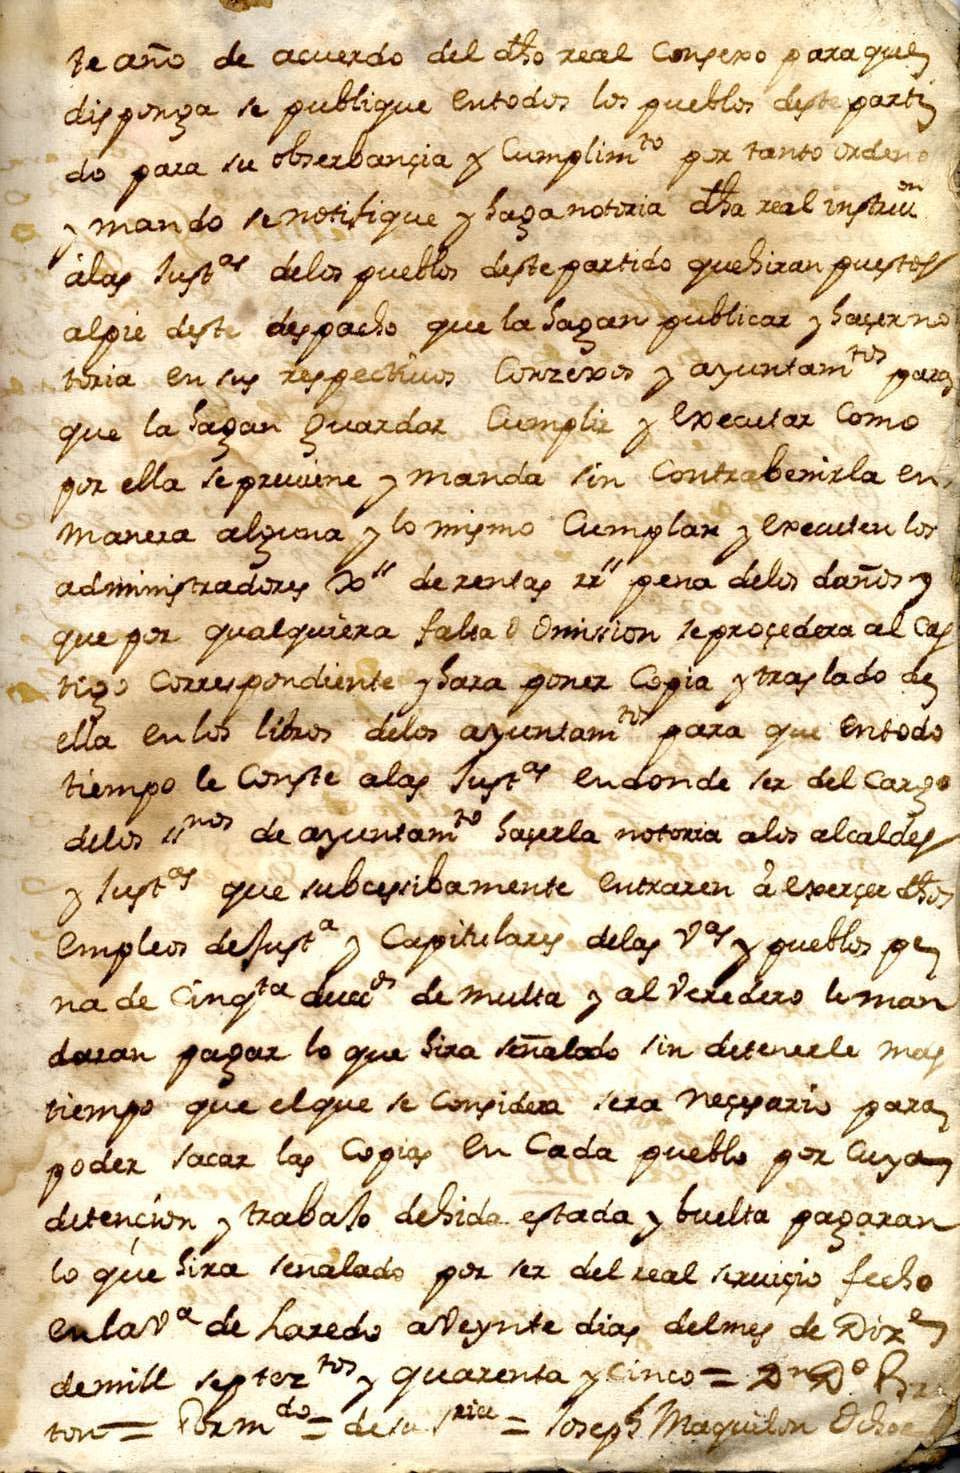 te año de acuerdo del dho real Consexo para que
disponga se publique en todos los pueblos deste parti
do para su obserbançia y Cumplimto por tanto ordeno
y mando se notifique y haga notoria dha real instruон
à las Justas de los pueblos deste partido que hiran puestos
al pie deste despacho que la hagan publicar y haçer no
toria en sus respectiuos Conzexos y ayuntamtos para
que la hagan guardar Cumplir y executar Como
por ella se preuiene y manda sin Contrabenirla en
manera alguna y lo mismo Cumplan y executen los
administradores de rentas rrs pena de los daños y
que por qualquiera falta o omission se proçedera al Cas
tigo Correspondiente y hara poner Copia y traslado de
ella en los libros de los ayuntamtos para que en todo
tiempo le Conste a las Justas en donde ser del Cargo
de los ssnos de ayuntamto haçerla notoria a los alcaldes
y Justas que subcesibamente entraren à exerçer dhos
empleos de Justa y Capitulares de las Vas y pueblos pe
na de Cinqta duccos de multa y al Veredero le man
daran pagar lo que hira señalado sin detenerle mas
tiempo que el que se Considera sera neçesario para
poder sacar las Copias en Cada pueblo por Cuya
detençion y trabajo de hida estada y buelta pagaran
lo que hira señalado por ser del real seruiçio fecho
en la Va de Laredo a Veynte dias del mes de Dizre
de mill septeztos y quarenta y Cinco = Dn Do
ton = Por mdo = de su sria = Joseph Maquilon Ochoa